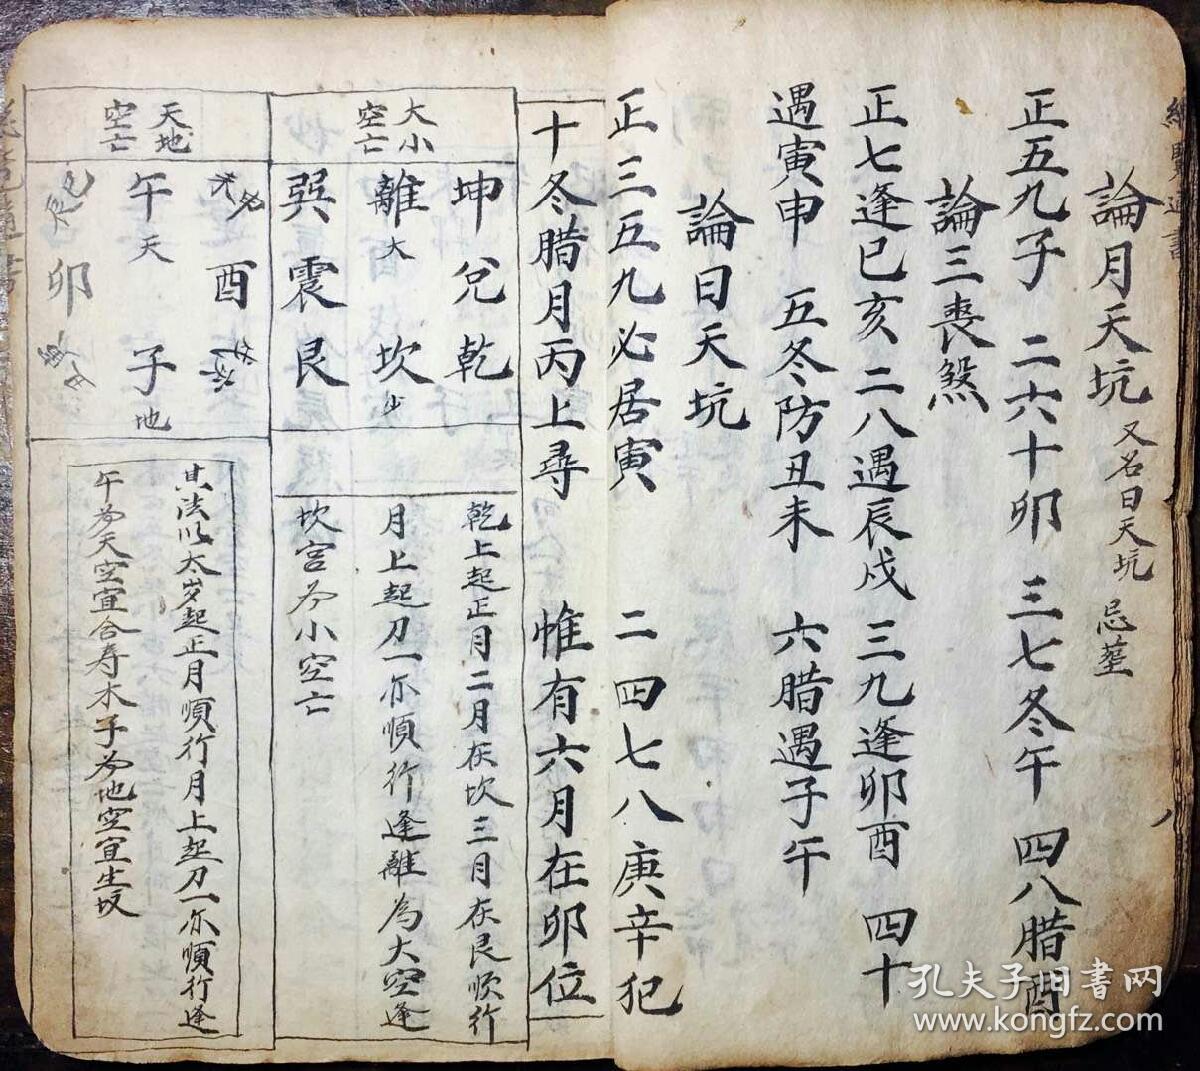 論月天坑 又名曰天坑 忌塟
正五九子 二六十卯 三七冬午 四八腊酉
論三喪煞
正七逢巳亥 二八遇辰戌 三九逢卯酉 四十
遇寅申 五冬防丑未 六腊遇子午
論日天坑
正三五九必居寅 二四七八庚辛犯
十冬腊月丙上尋 惟有六月在卯位
大小
空亡
坤兌乾
離大坎少
巽震艮
乾上起正月二月在坎三月在艮順行
月上起刀一亦順行逢離為大空逢
坎宮为小空亡
天地
空亡
酉
午天子地
卯
其法以太岁起正月順行月上起刀一亦順行逢
午为天空宜合寿木子为地空宜生坟
八
孔夫子旧书网
www.kongfz.com